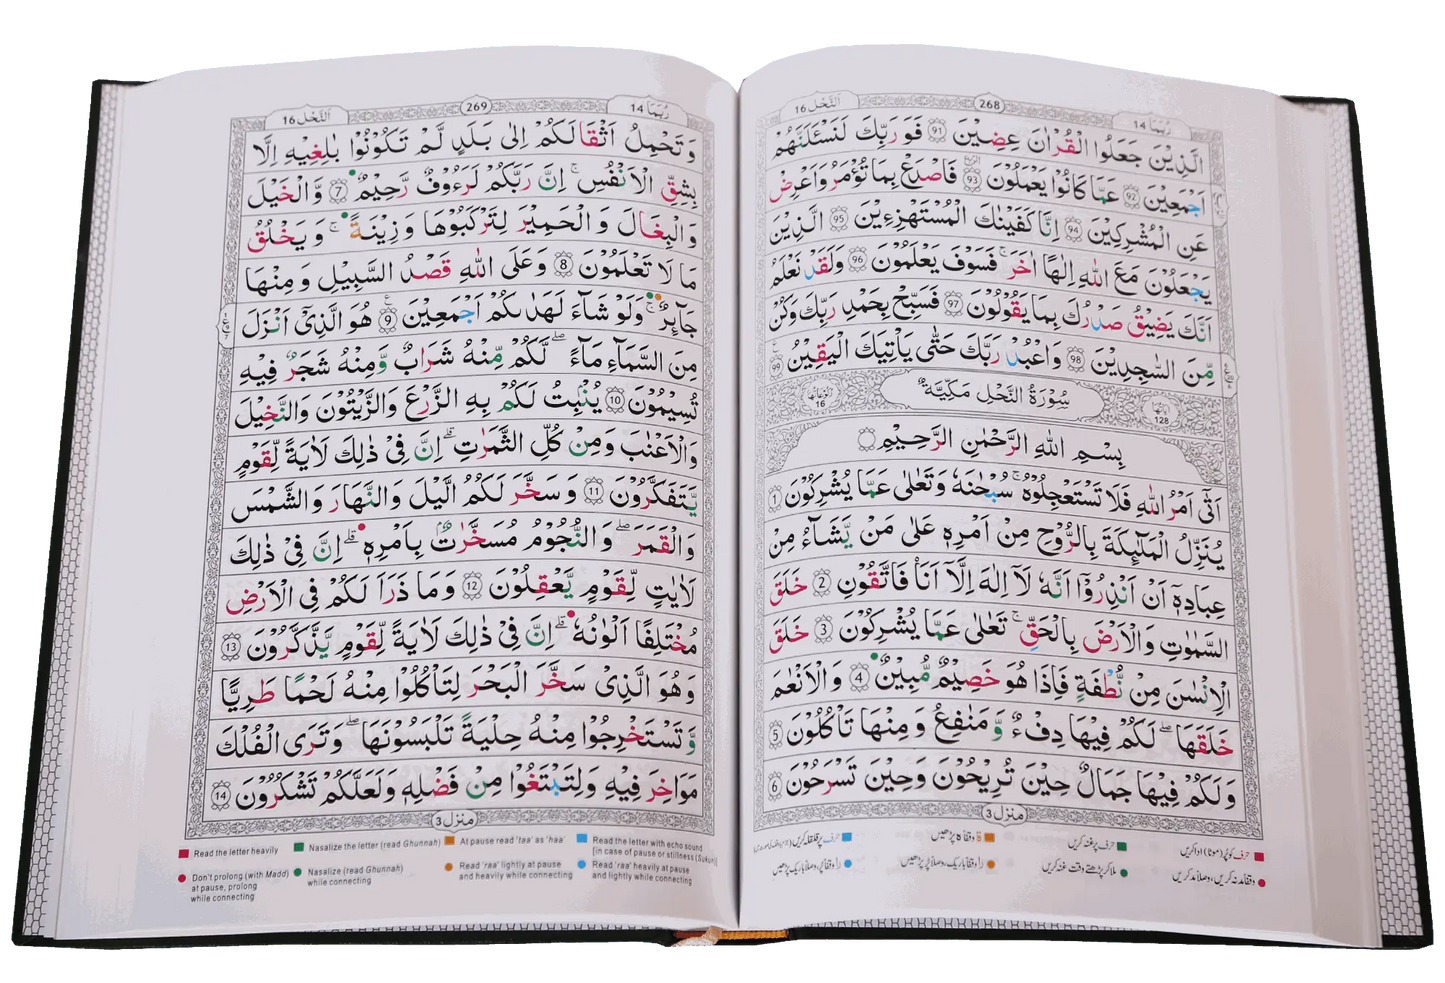 ربما 14
268
النحل 16
الَّذِيْنَ جَعَلُوا الْقُرْاٰنَ عِضِيْنَ 91 فَوَرَبِّكَ لَنَسْـَٔلَنَّهُمْ
اَجْمَعِيْنَ 92 عَمَّا كَانُوْا يَعْمَلُوْنَ 93 فَاصْدَعْ بِمَا تُؤْمَرُ وَاَعْرِضْ
عَنِ الْمُشْرِكِيْنَ 94 اِنَّا كَفَيْنٰكَ الْمُسْتَهْزِءِيْنَ 95 الَّذِيْنَ
يَجْعَلُوْنَ مَعَ اللّٰهِ اِلٰهًا اٰخَرَ ۚ فَسَوْفَ يَعْلَمُوْنَ 96 وَلَقَدْ نَعْلَمُ
اَنَّكَ يَضِيْقُ صَدْرُكَ بِمَا يَقُوْلُوْنَ 97 فَسَبِّحْ بِحَمْدِ رَبِّكَ وَكُنْ
مِّنَ السّٰجِدِيْنَ 98 وَاعْبُدْ رَبَّكَ حَتّٰى يَاْتِيَكَ الْيَقِيْنُ 99
اٰيَاتُهَا 128
سُوْرَةُ النَّحْلِ مَكِّيَّةٌ
رُكُوْعَاتُهَا 16
بِسْمِ اللّٰهِ الرَّحْمٰنِ الرَّحِيْمِ
اَتٰٓى اَمْرُ اللّٰهِ فَلَا تَسْتَعْجِلُوْهُ ۚ سُبْحٰنَهٗ وَتَعٰلٰى عَمَّا يُشْرِكُوْنَ 1
يُنَزِّلُ الْمَلٰٓئِكَةَ بِالرُّوْحِ مِنْ اَمْرِهٖ عَلٰى مَنْ يَّشَآءُ مِنْ
عِبَادِهٖٓ اَنْ اَنْذِرُوْٓا اَنَّهٗ لَآ اِلٰهَ اِلَّآ اَنَا فَاتَّقُوْنِ 2 خَلَقَ
السَّمٰوٰتِ وَالْاَرْضَ بِالْحَقِّ ۚ تَعٰلٰى عَمَّا يُشْرِكُوْنَ 3 خَلَقَ
الْاِنْسٰنَ مِنْ نُّطْفَةٍ فَاِذَا هُوَ خَصِيْمٌ مُّبِيْنٌ 4 وَالْاَنْعٰمَ
خَلَقَهَا ۖ لَكُمْ فِيْهَا دِفْءٌ وَّمَنٰفِعُ وَمِنْهَا تَاْكُلُوْنَ 5
وَلَكُمْ فِيْهَا جَمَالٌ حِيْنَ تُرِيْحُوْنَ وَحِيْنَ تَسْرَحُوْنَ 6
منزل 3
حرف کو پُر (موٹا) ادا کریں
حرف پر غنہ کریں
وقفاً ہ پڑھیں
حرف پر قلقلہ کریں
وقفاً مد نہ کریں، وصلاً مد کریں
ملا کر پڑھتے وقت غنہ کریں
را وقفاً باریک، وصلاً پُر پڑھیں
را وقفاً پُر، وصلاً باریک پڑھیں
ربما 14
269
النحل 16
وَتَحْمِلُ اَثْقَالَكُمْ اِلٰى بَلَدٍ لَّمْ تَكُوْنُوْا بٰلِغِيْهِ اِلَّا
بِشِقِّ الْاَنْفُسِ ۚ اِنَّ رَبَّكُمْ لَرَءُوْفٌ رَّحِيْمٌ 7 وَّالْخَيْلَ
وَالْبِغَالَ وَالْحَمِيْرَ لِتَرْكَبُوْهَا وَزِيْنَةً ۚ وَيَخْلُقُ
مَا لَا تَعْلَمُوْنَ 8 وَعَلَى اللّٰهِ قَصْدُ السَّبِيْلِ وَمِنْهَا
جَآئِرٌ ۚ وَلَوْ شَآءَ لَهَدٰىكُمْ اَجْمَعِيْنَ 9 هُوَ الَّذِيْٓ اَنْزَلَ
مِنَ السَّمَآءِ مَآءً ۖ لَّكُمْ مِّنْهُ شَرَابٌ وَّمِنْهُ شَجَرٌ فِيْهِ
تُسِيْمُوْنَ 10 يُنْۢبِتُ لَكُمْ بِهِ الزَّرْعَ وَالزَّيْتُوْنَ وَالنَّخِيْلَ
وَالْاَعْنٰبَ وَمِنْ كُلِّ الثَّمَرٰتِ ۗ اِنَّ فِيْ ذٰلِكَ لَاٰيَةً لِّقَوْمٍ
يَّتَفَكَّرُوْنَ 11 وَسَخَّرَ لَكُمُ الَّيْلَ وَالنَّهَارَ وَالشَّمْسَ
وَالْقَمَرَ ۖ وَالنُّجُوْمُ مُسَخَّرٰتٌۢ بِاَمْرِهٖ ۗ اِنَّ فِيْ ذٰلِكَ
لَاٰيٰتٍ لِّقَوْمٍ يَّعْقِلُوْنَ 12 وَمَا ذَرَاَ لَكُمْ فِي الْاَرْضِ
مُخْتَلِفًا اَلْوَانُهٗ ۗ اِنَّ فِيْ ذٰلِكَ لَاٰيَةً لِّقَوْمٍ يَّذَّكَّرُوْنَ 13
وَهُوَ الَّذِيْ سَخَّرَ الْبَحْرَ لِتَاْكُلُوْا مِنْهُ لَحْمًا طَرِيًّا
وَّتَسْتَخْرِجُوْا مِنْهُ حِلْيَةً تَلْبَسُوْنَهَا ۖ وَتَرَى الْفُلْكَ
مَوَاخِرَ فِيْهِ وَلِتَبْتَغُوْا مِنْ فَضْلِهٖ وَلَعَلَّكُمْ تَشْكُرُوْنَ 14
منزل 3
Read the letter heavily
Nasalize the letter (read Ghunnah)
At pause read 'taa' as 'haa'
Read the letter with echo sound
[in case of pause or stillness (Sukun)]
Don't prolong (with Madd)
at pause, prolong
while connecting
Nasalize (read Ghunnah)
while connecting
Read 'raa' lightly at pause
and heavily while connecting
Read 'raa' heavily at pause
and lightly while connecting